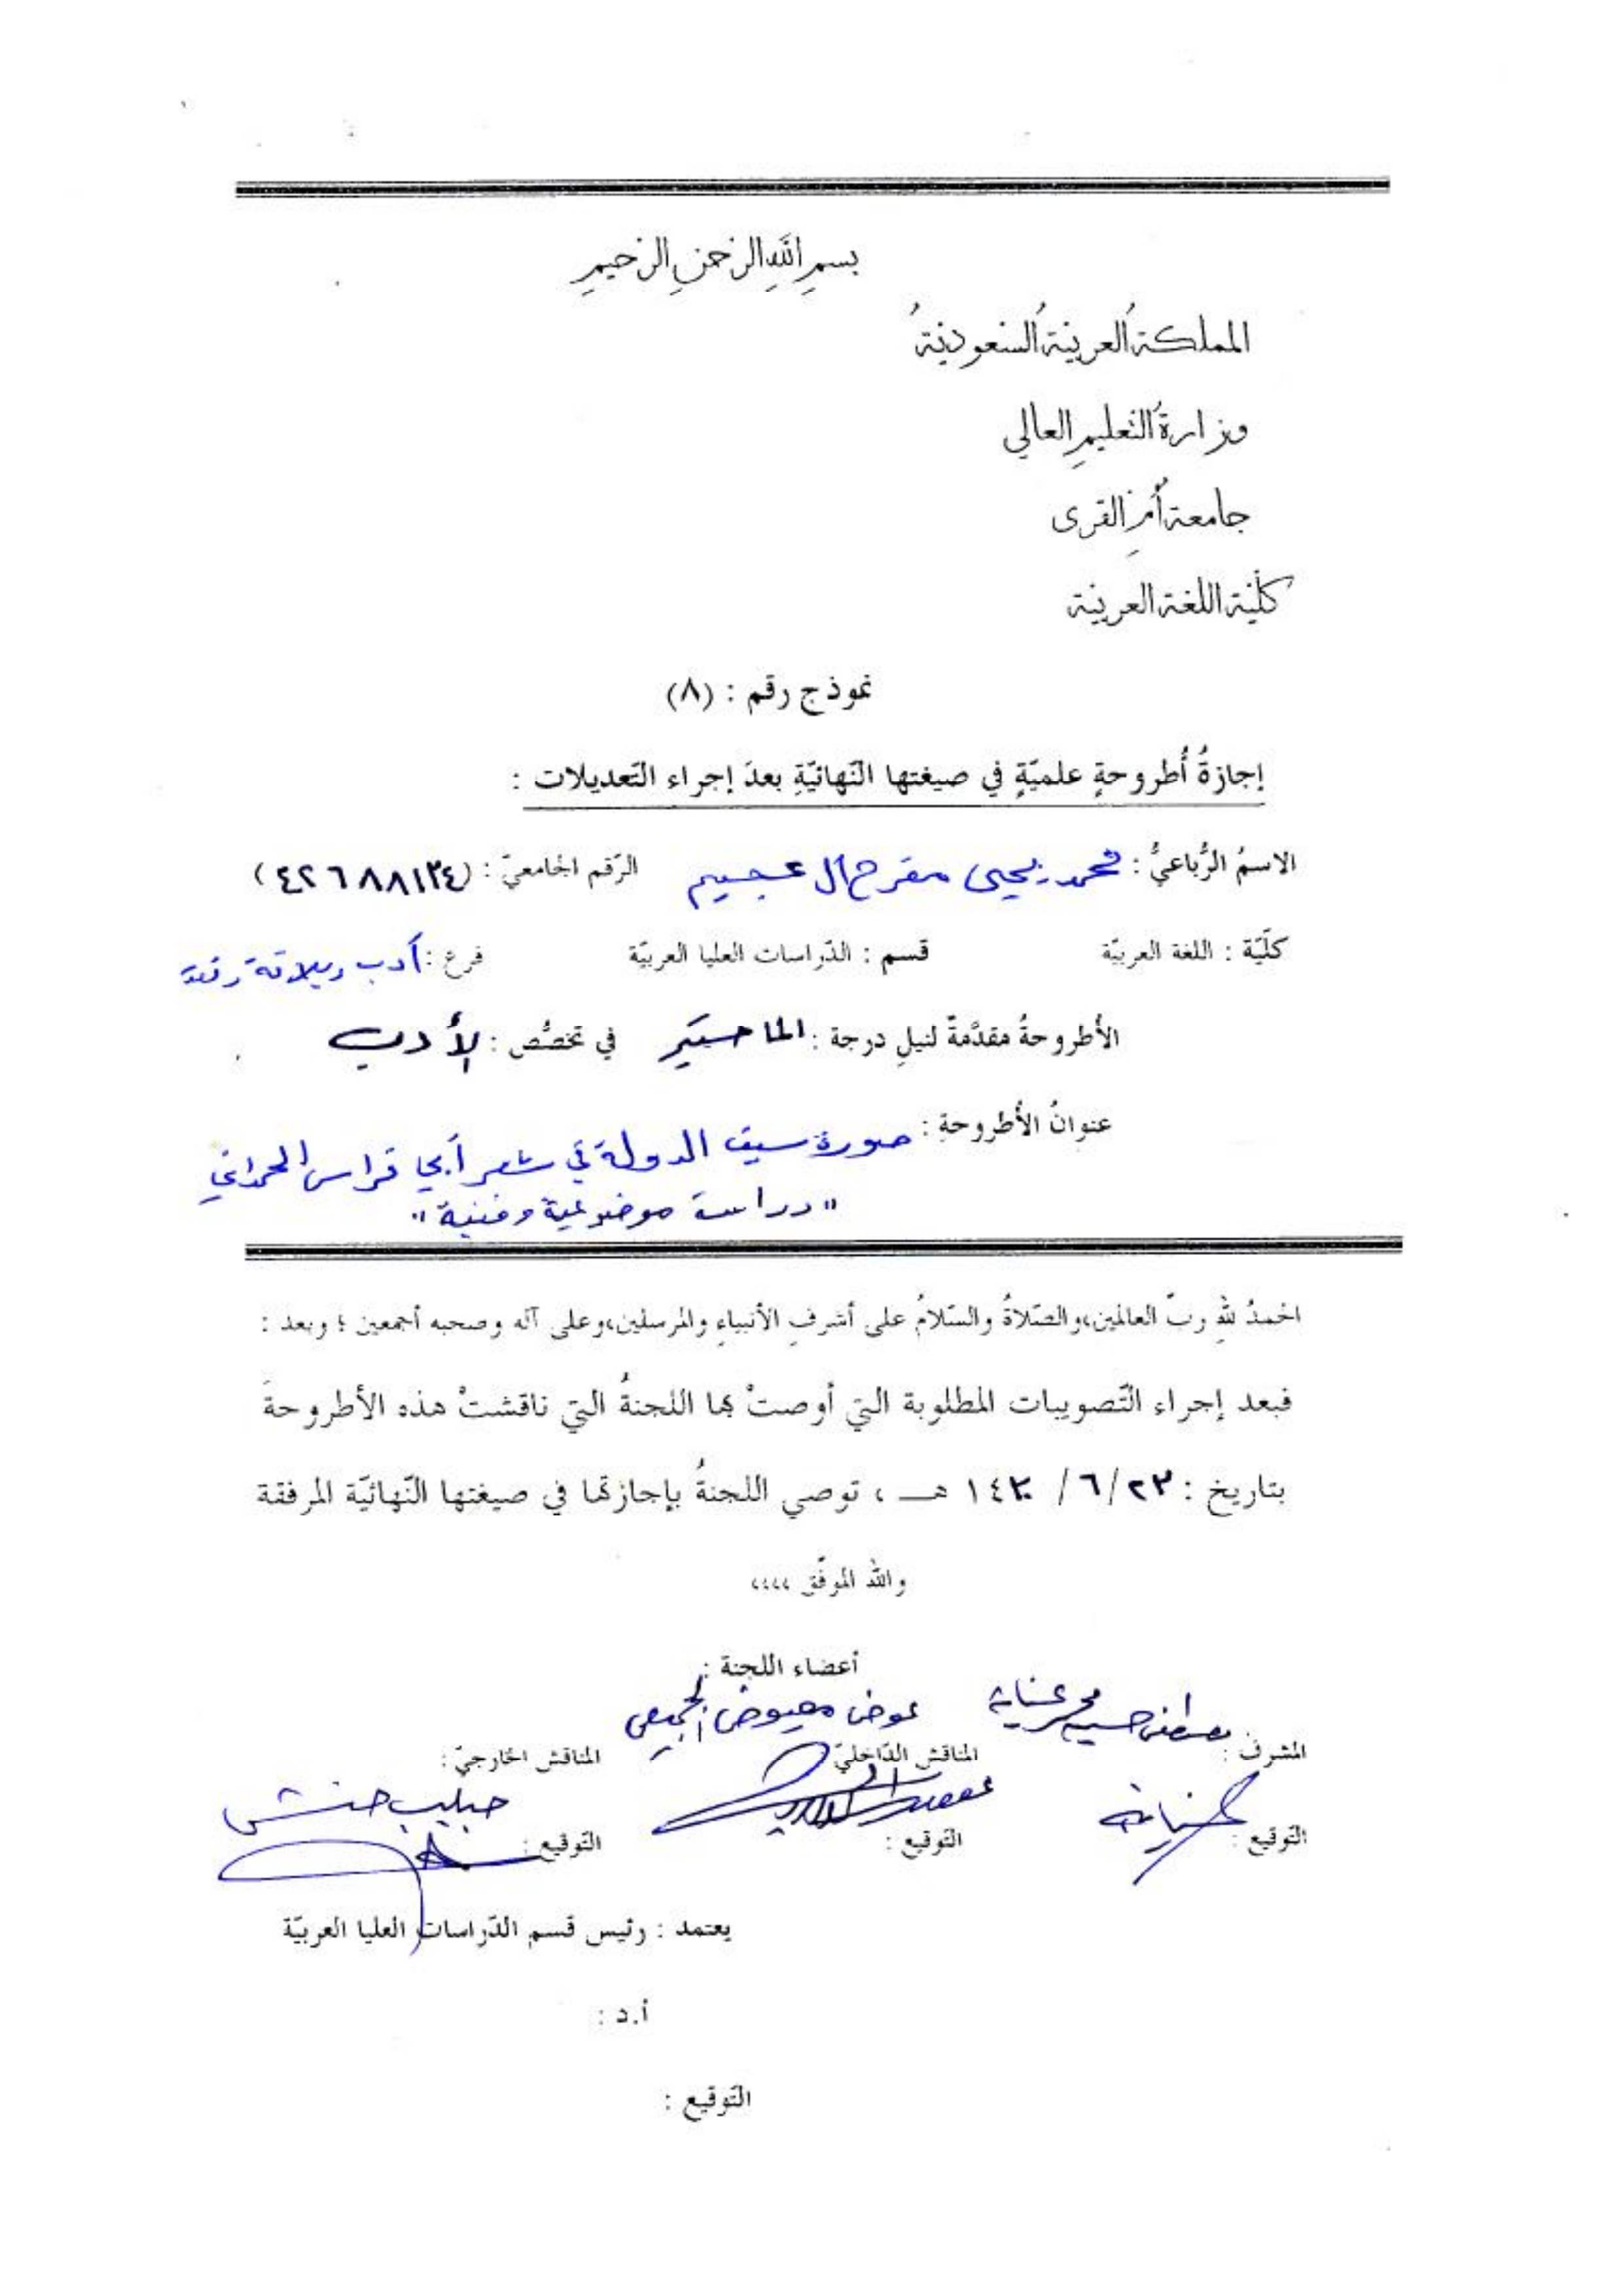 بسم الله الرحمن الرحيم
المملكة العربية السعودية
وزارة التعليم العالي
جامعة أم القرى
كلية اللغة العربية
نموذج رقم : (٨)
إجازةُ أُطروحةٍ علميّةٍ في صيغتها النّهائيّةِ بعدَ إجراء التّعديلات :
الاسمُ الرُّباعيُّ : محمد يحيى مفرح آل عجيم الرّقم الجامعيّ : (٤٢٦٨٨١٣٤)
كلّيّة : اللغة العربيّة قسم : الدّراسات العليا العربيّة فرع : أدب وبلاغة ونقد
الأُطروحةُ مقدَّمةٌ لنيلِ درجة : الماجستير في تخصُّص : الأدب
عنوانُ الأُطروحةِ : صورة سيف الدولة في شعر أبي فراس الحمداني
"دراسة موضوعية وفنية"
الحمدُ للهِ ربّ العالمين،والصّلاةُ والسّلامُ على أشرفِ الأنبياءِ والمرسلين،وعلى آله وصحبه أجمعين ؛ وبعد :
فبعد إجراء التّصويبات المطلوبة التي أوصتْ بها اللجنةُ التي ناقشتْ هذه الأطروحةَ
بتاريخ : ٢٣ /٦ / ١٤٣٠ هـ ، توصي اللجنةُ بإجازتها في صيغتها النّهائيّة المرفقة
والله الموفّق ،،،،
أعضاء اللجنة :
مصطفى حسين محمد عناية عوض معيوض الجميعي
المشرف : المناقش الدّاخليّ المناقش الخارجيّ :
حبيب حنش
التّوقيع : التّوقيع : التّوقيع :
يعتمد : رئيس قسم الدّراسات العليا العربيّة
أ.د :
التّوقيع :